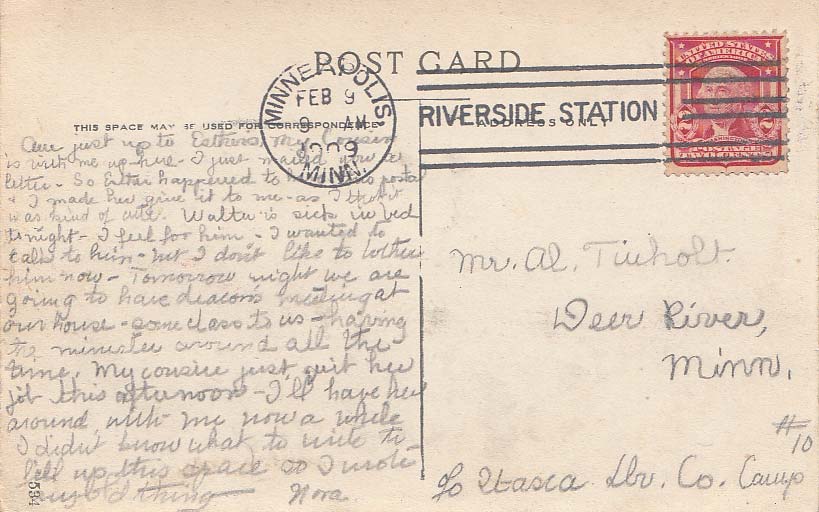 POST CARD
MINNEAPOLIS, MINN.
FEB 9
9 AM
1909
RIVERSIDE STATION
UNITED STATES
OF AMERICA
2 2
THIS SPACE MAY BE USED FOR CORRESPONDENCE
ADDRESS ONLY
Am just up to Esthers, my cousin
is with me up here - I just mailed your
letter - So Esther happened to have this postal
& I made her give it to me - as I thot it
was kind of cute. Walter is sick in bed
tonight - I feel for him - I wanted to
talk to him - but I don't like to bother
him now - Tomorrow night we are
going to have deacons meeting at
our house - some class to us - having
the minister around all the
time. My cousin just quit her
job this afternoon - I'll have her
around with me now a while
I didn't know what to write to
fill up this space so I wrote
any old thing - Nora.
Mr. Al.
Deer River,
Minn.
#10
c/o Itasca Lbr. Co. Camp
594